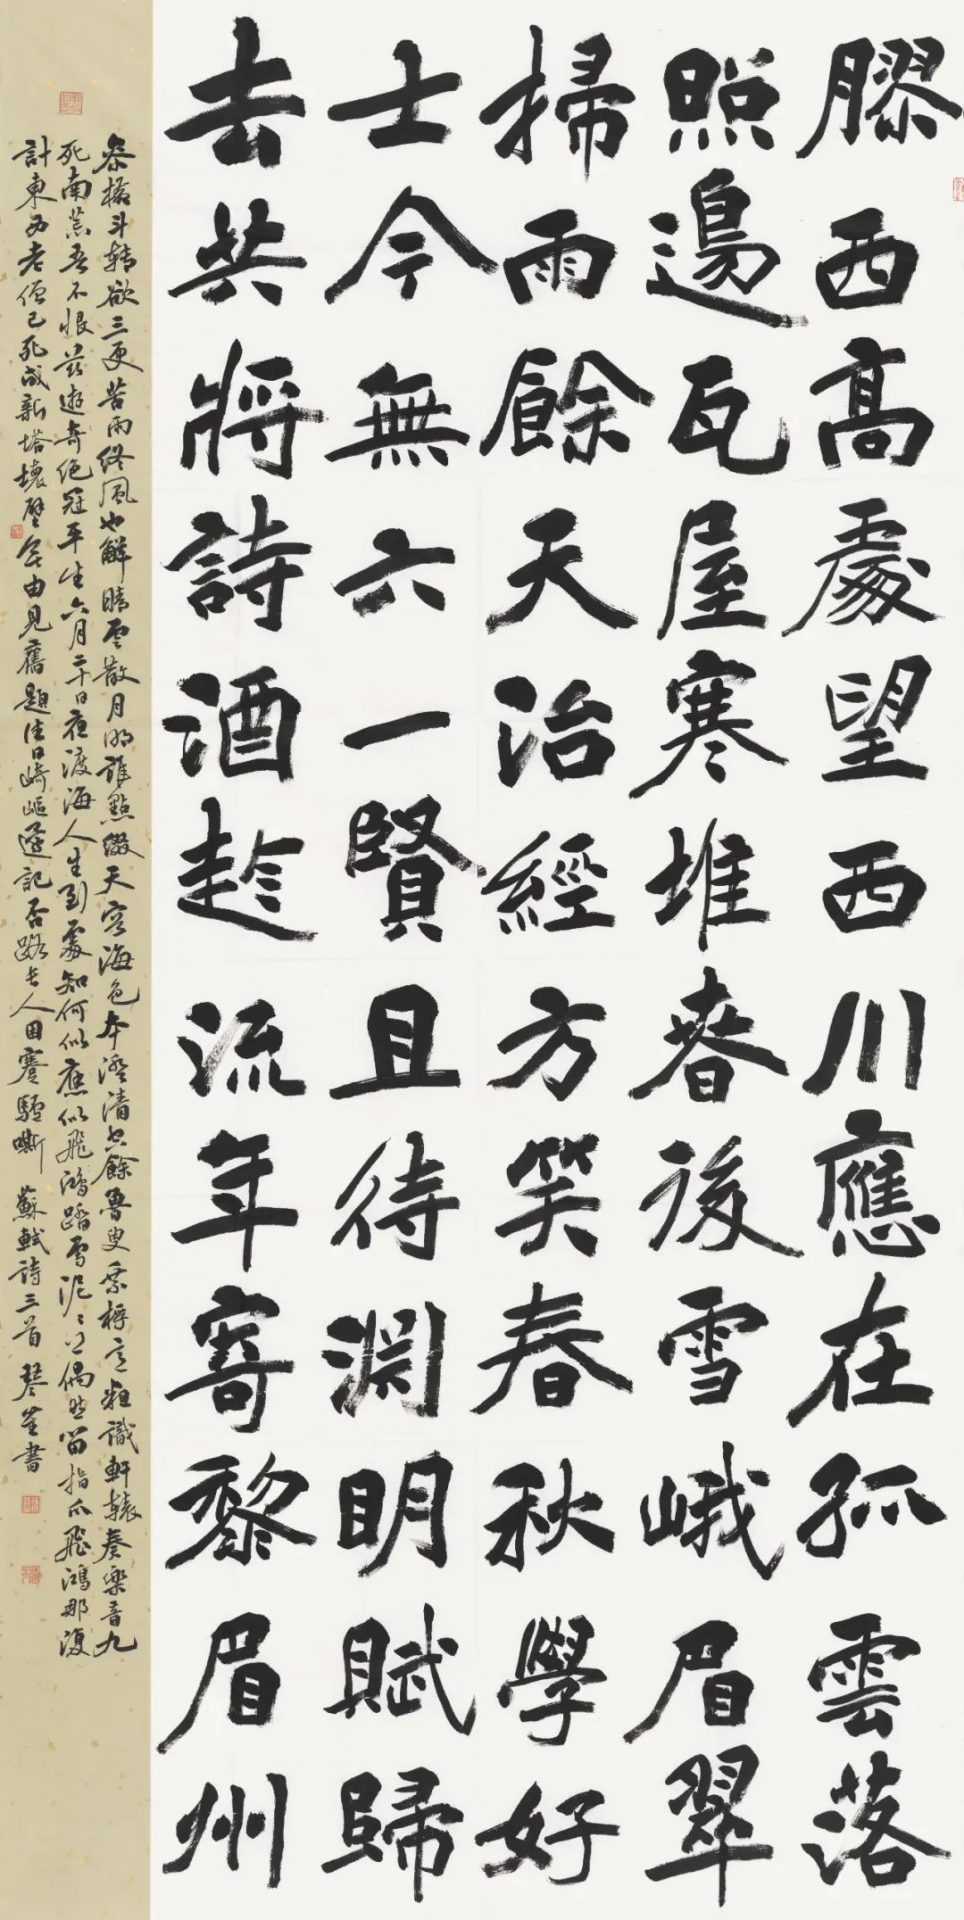 膠西高處望西川應在孤雲落
照邊瓦屋寒堆春後雪峨眉翠
掃雨餘天治經方笑春秋學好
士今無六一賢且待淵明賦歸
去共將詩酒趁流年寄黎眉州
参橫斗轉欲三更苦雨終風也解晴雲散月明誰點綴天容海色本澄清空餘魯叟乘桴意粗識軒轅奏樂音九
死南荒吾不恨茲遊奇絕冠平生六月二十日夜渡海人生到處知何似應似飛鴻踏雪泥〻上偶然留指爪飛鴻那復
計東西老僧已死成新塔壞壁無由見舊題往日崎嶇還記否路長人困蹇驢嘶 蘇軾詩三首 書